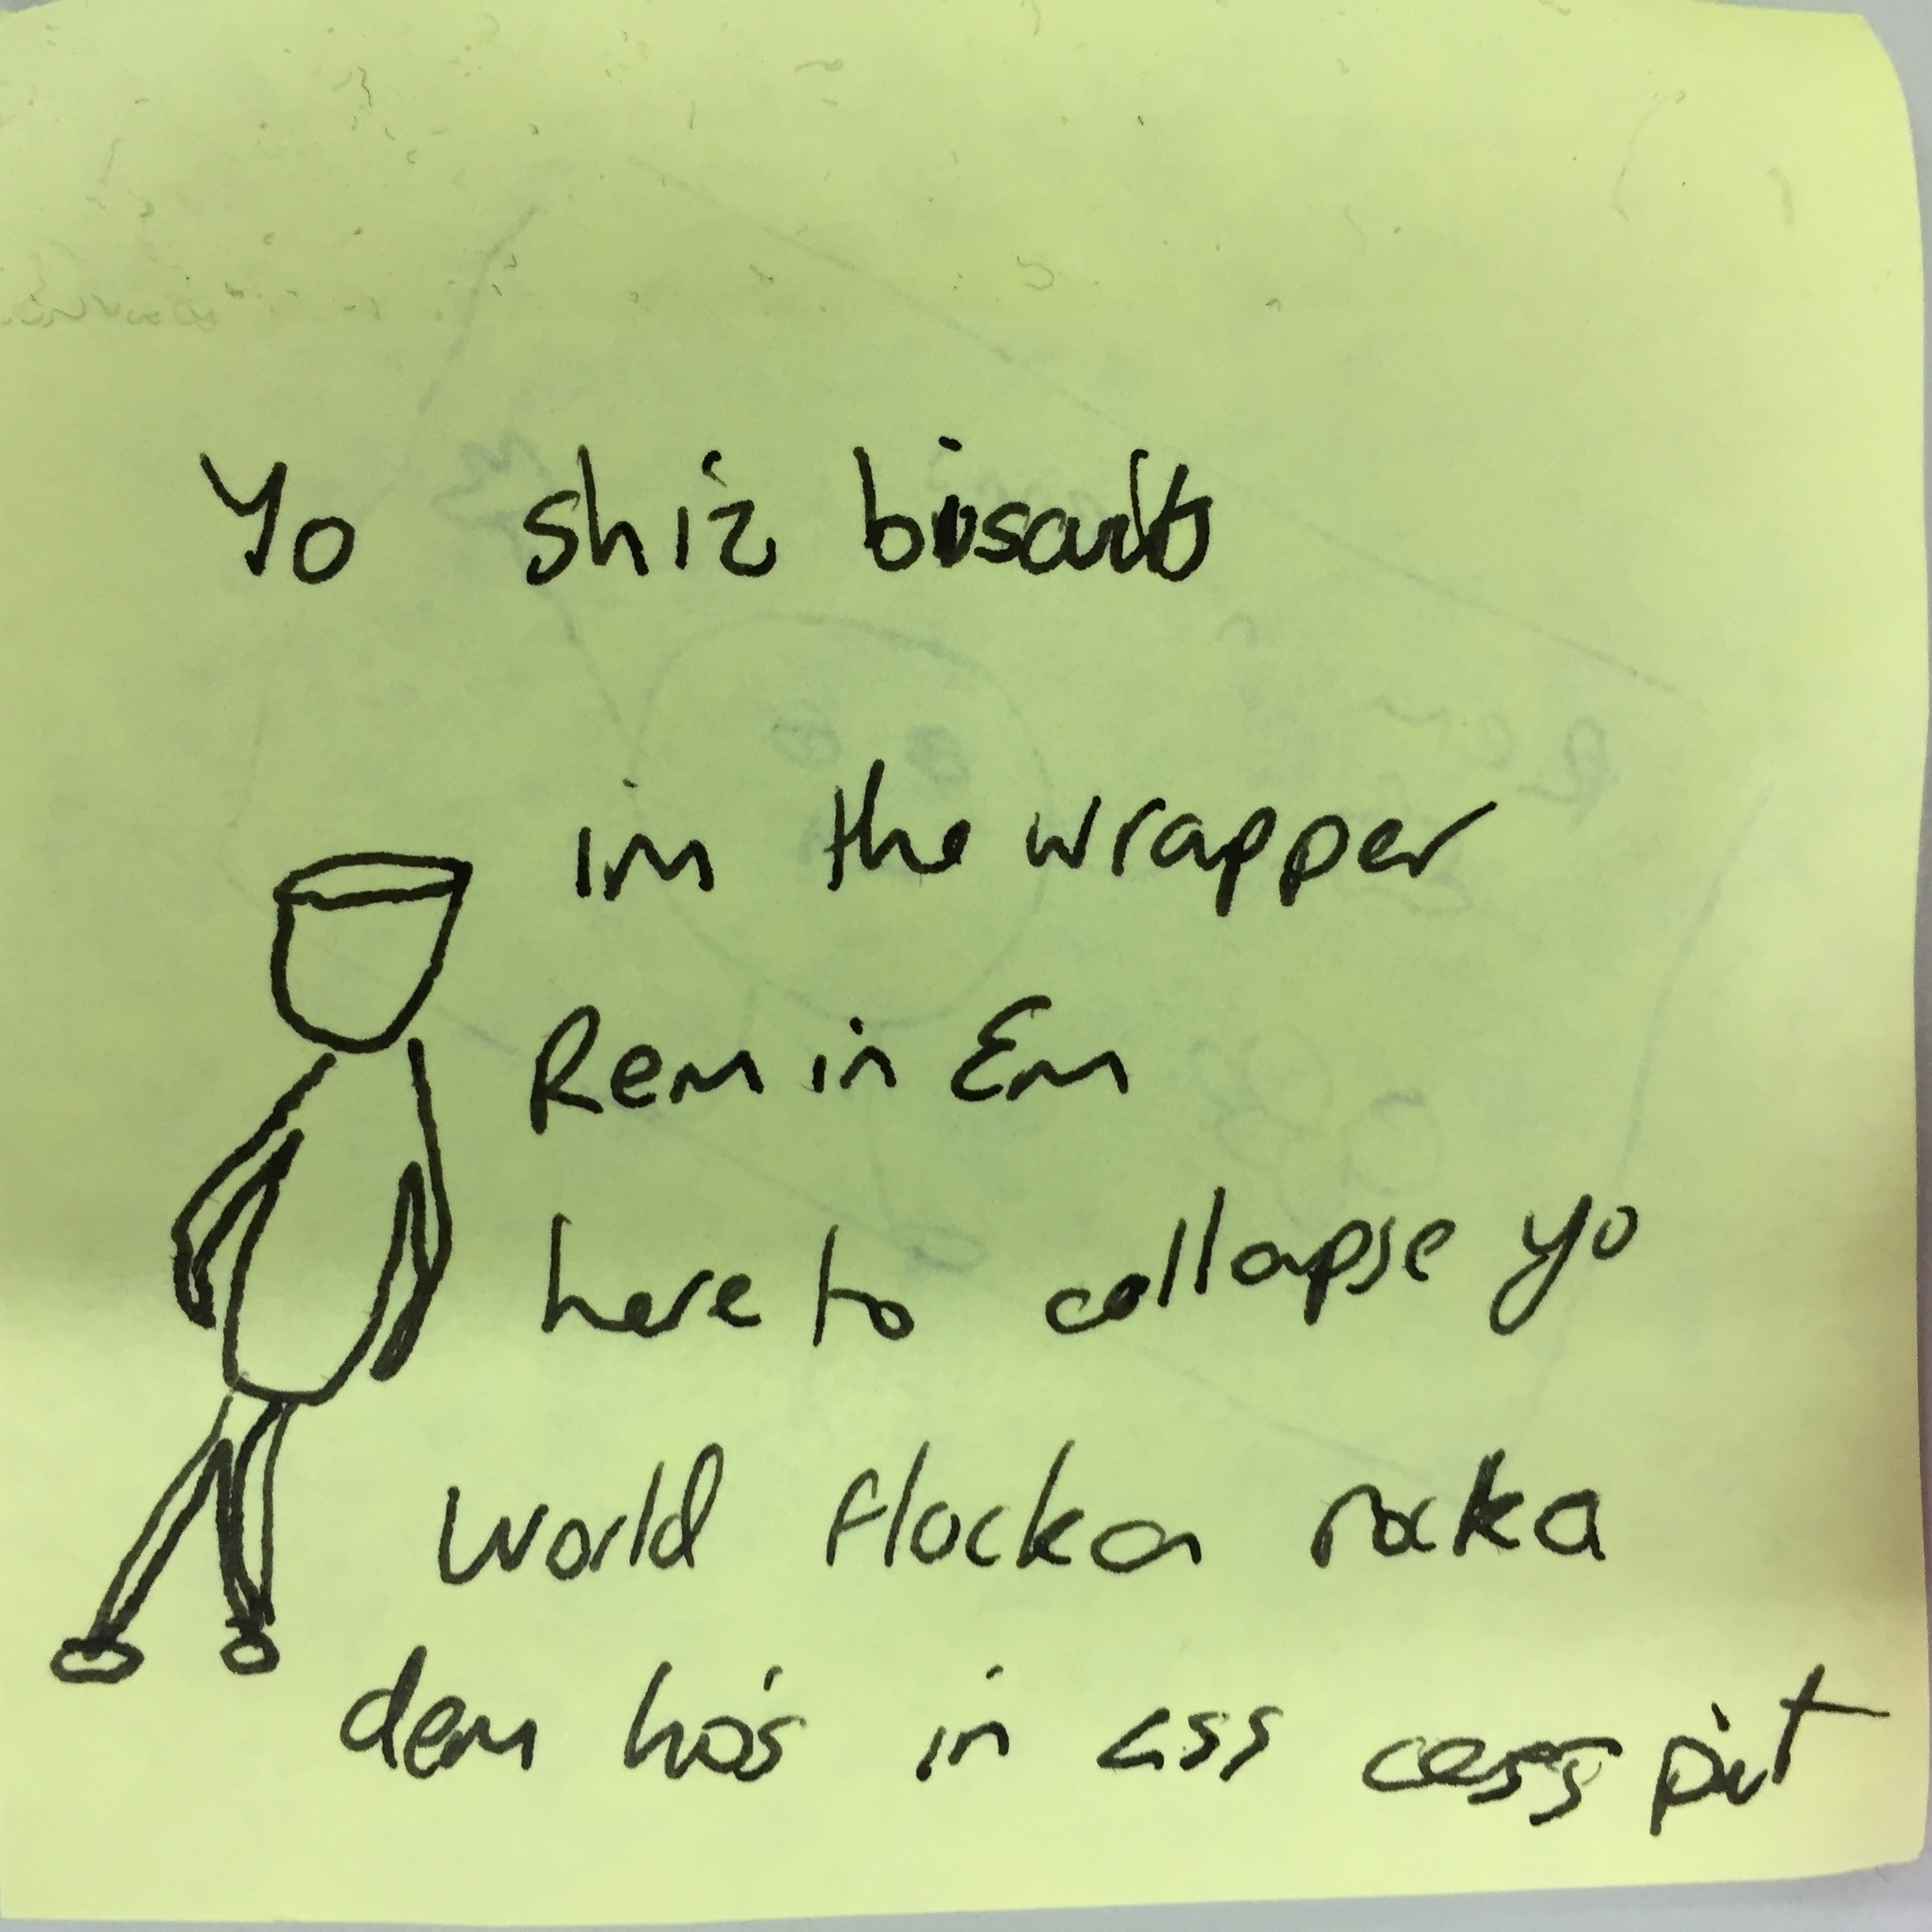 Yo shiz biscuits
im the wrapper
Rem in Em
here to collapse yo
world flocka rocka
dem ho's in css cess pit